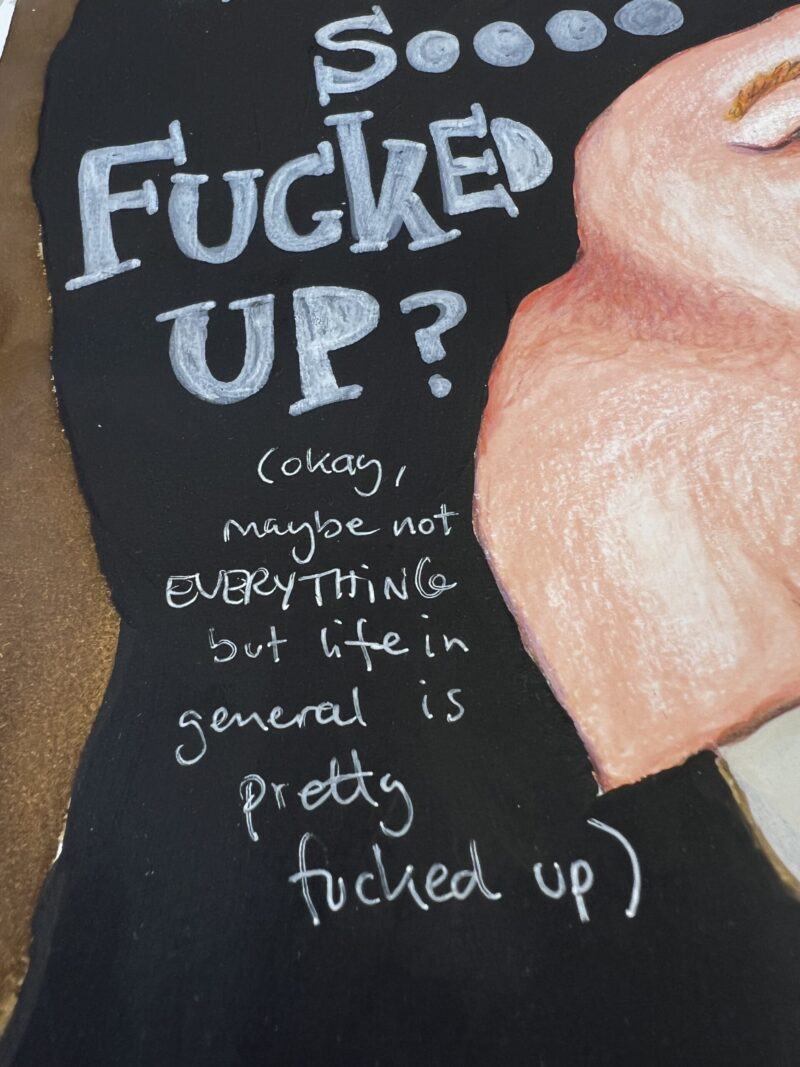 Soooo
FUCKED
UP?
(okay,
maybe not
EVERYTHiNG
but life in
general is
pretty
fucked up)